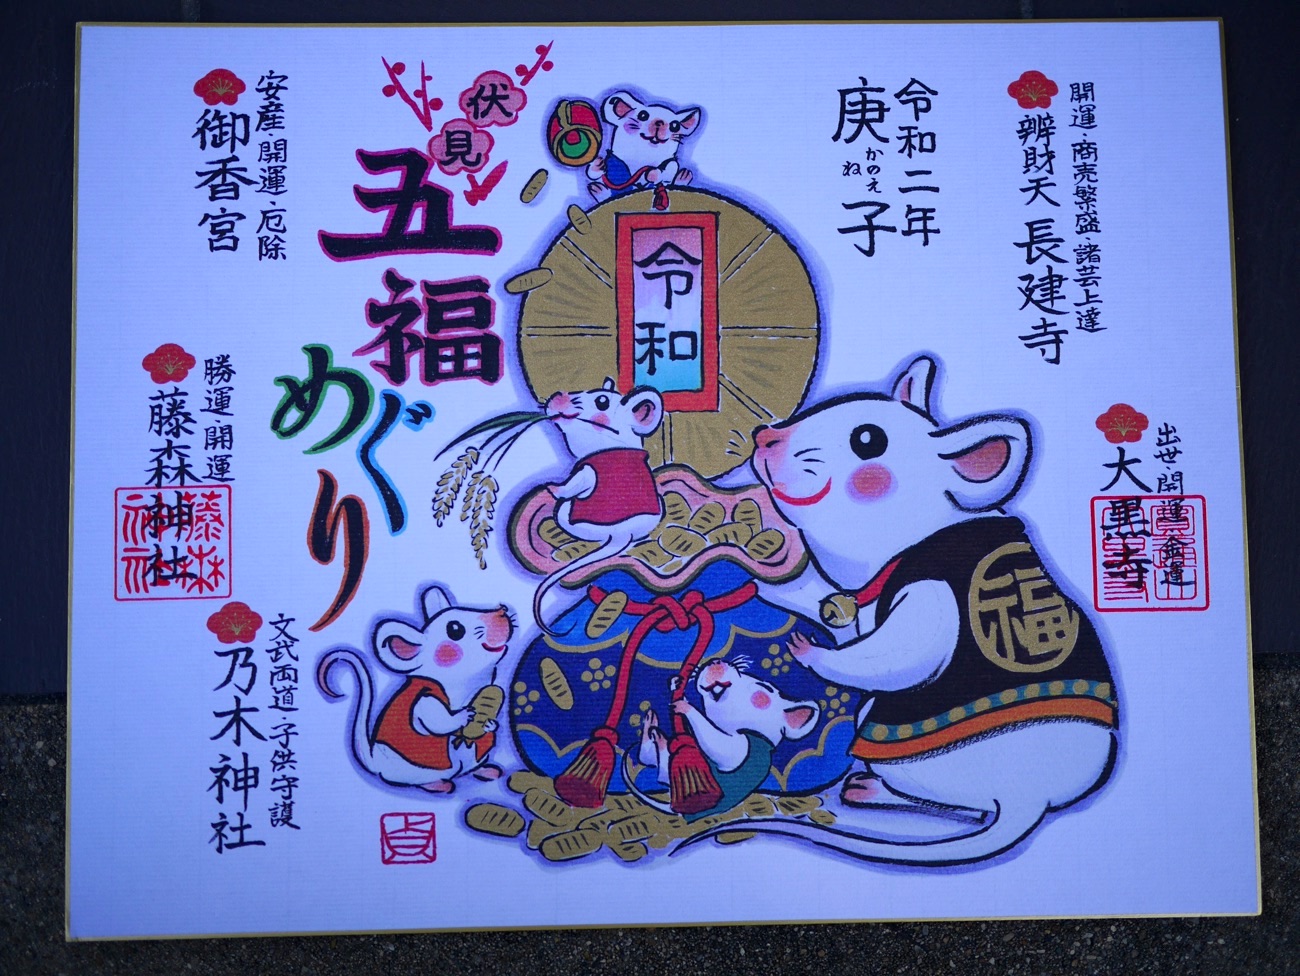 開運・商売繁盛・諸芸上達
辨財天 長建寺
出世・開運・金運
大黒寺
令和二年
庚子
かのえ
ね
伏見
五福
めぐり
令和
福
安産・開運・厄除
御香宮
勝運・開運
藤森神社
文武両道・子供守護
乃木神社
藤森
神社
貞